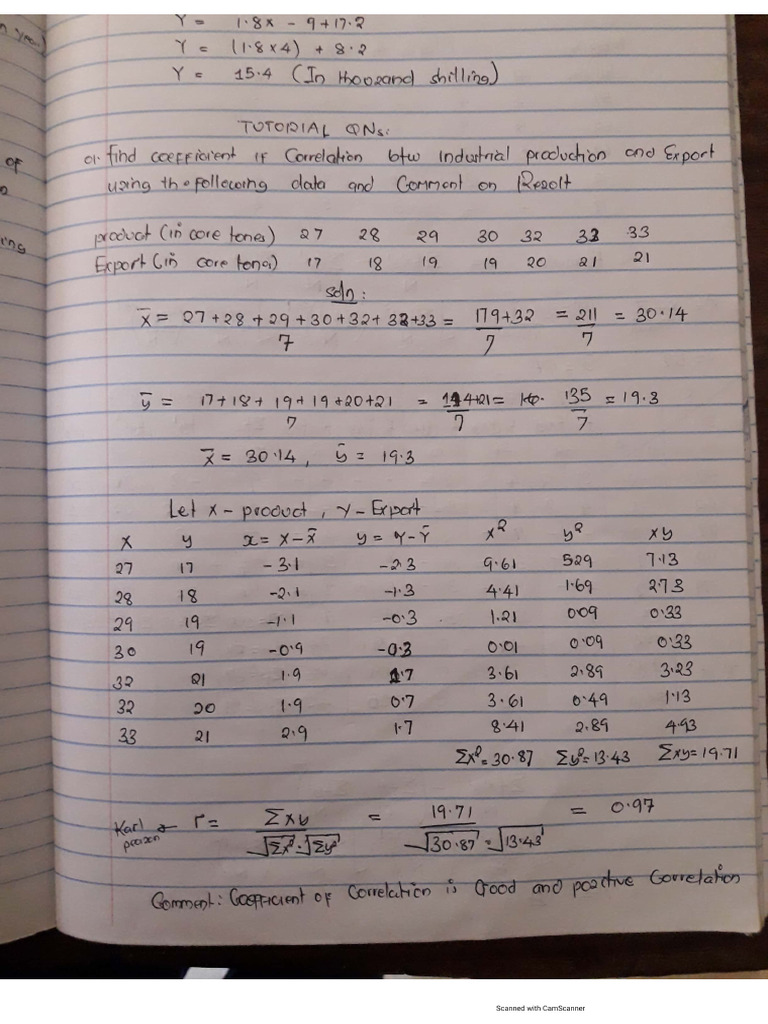 Y = 1.8x - 9 + 17.2
Y = (1.8 x 4) + 8.2
Y = 15.4 (In thousand shilling)
n year)
TUTORIAL QNs:
of
01. find coefficient if Correlation btw industrial production and Export
using the following data and Comment on Result
product (in core tones) 27 28 29 30 32 32 33
ing
Export (in core tones) 17 18 19 19 20 21 21
soln:
x̄ = 27+28+29+30+32+32+33 = 179+32 = 211 = 30.14
7 7 7
ȳ = 17+18+19+19+20+21 = 114+21 = 135 = 19.3
7 7 7
x̄ = 30.14, ȳ = 19.3
Let x - product, y - Export
x y x = X - X̄ y = Y - Ȳ x² y² xy
27 17 -3.1 -2.3 9.61 529 7.13
28 18 -2.1 -1.3 4.41 1.69 2.73
29 19 -1.1 -0.3 1.21 0.09 0.33
30 19 -0.9 -0.3 0.01 0.09 0.33
32 21 1.9 1.7 3.61 2.89 3.23
32 20 1.9 0.7 3.61 0.49 1.13
33 21 2.9 1.7 8.41 2.89 4.93
Σx² = 30.87 Σy² = 13.43 Σxy = 19.71
Karl r = Σxy = 19.71 = 0.97
√Σx² . √Σy² √30.87 = √13.43
Comment: Coefficient of Correlation is Good and positive Correlation
Scanned with CamScanner